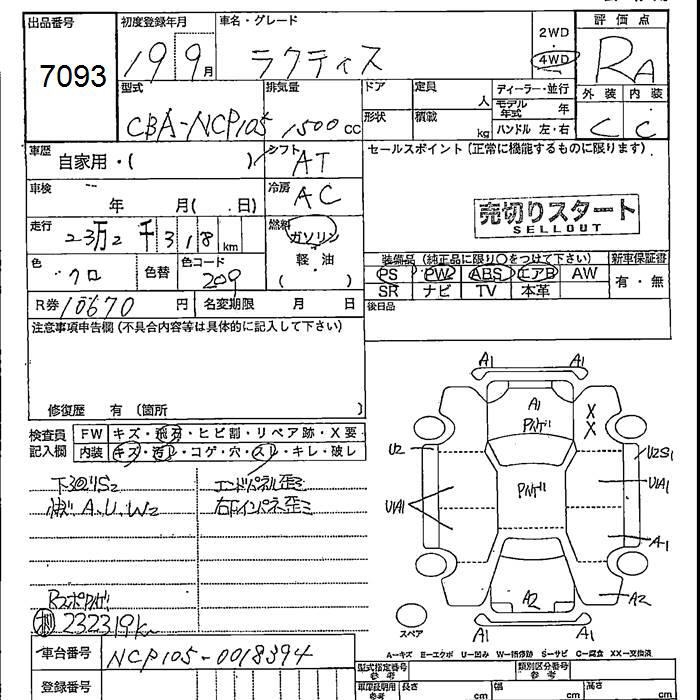 出品番号
7093
初度登録年月
19 9月
車名・グレード
ラクティス
2WD
4WD
評価点
RA
型式
CBA-NCP105
排気量
1500cc
ドア
定員
人
ディーラー・並行
モデル年式 年
外装 内装
C C
形状
積載
kg
ハンドル 左・右
車歴
自家用・( )
シフト
AT
セールスポイント(正常に機能するものに限ります)
車検
年 月( 日)
冷房
AC
売切りスタート
SELLOUT
走行
23万2千318km
燃料
ガソリン
軽・油
( )
装備品(純正品に限り○をつけて下さい)
新車保証書
PS PW ABS エアB AW
有・無
SR ナビ TV 本革
色
クロ
色替
色コード
209
R券 10670円
名変期限 月 日
後日品
注意事項申告欄(不具合内容等は具体的に記入して下さい)
修復歴 有(箇所 )
検査員
記入欄
FW キズ・飛石・ヒビ割・リペア跡・X要
内装 キズ・汚レ・コゲ・穴・スレ・キレ・破レ
下廻りS2
エンドパネル歪ミ
A、U、W2
232319km
車台番号 NCP105-0018394
登録番号
A1
A1
A1
X
X
U2
U2S1
U1A1
U1A1
A-1
A2
A2
A1
A1
スペア
A－キズ E－エクボ U－凹み W－補修跡 S－サビ C－腐食 XX－交換済
型式指定番号
参考
類別区分番号
参考
車庫証明用
参考
長さ cm
幅 cm
高さ cm